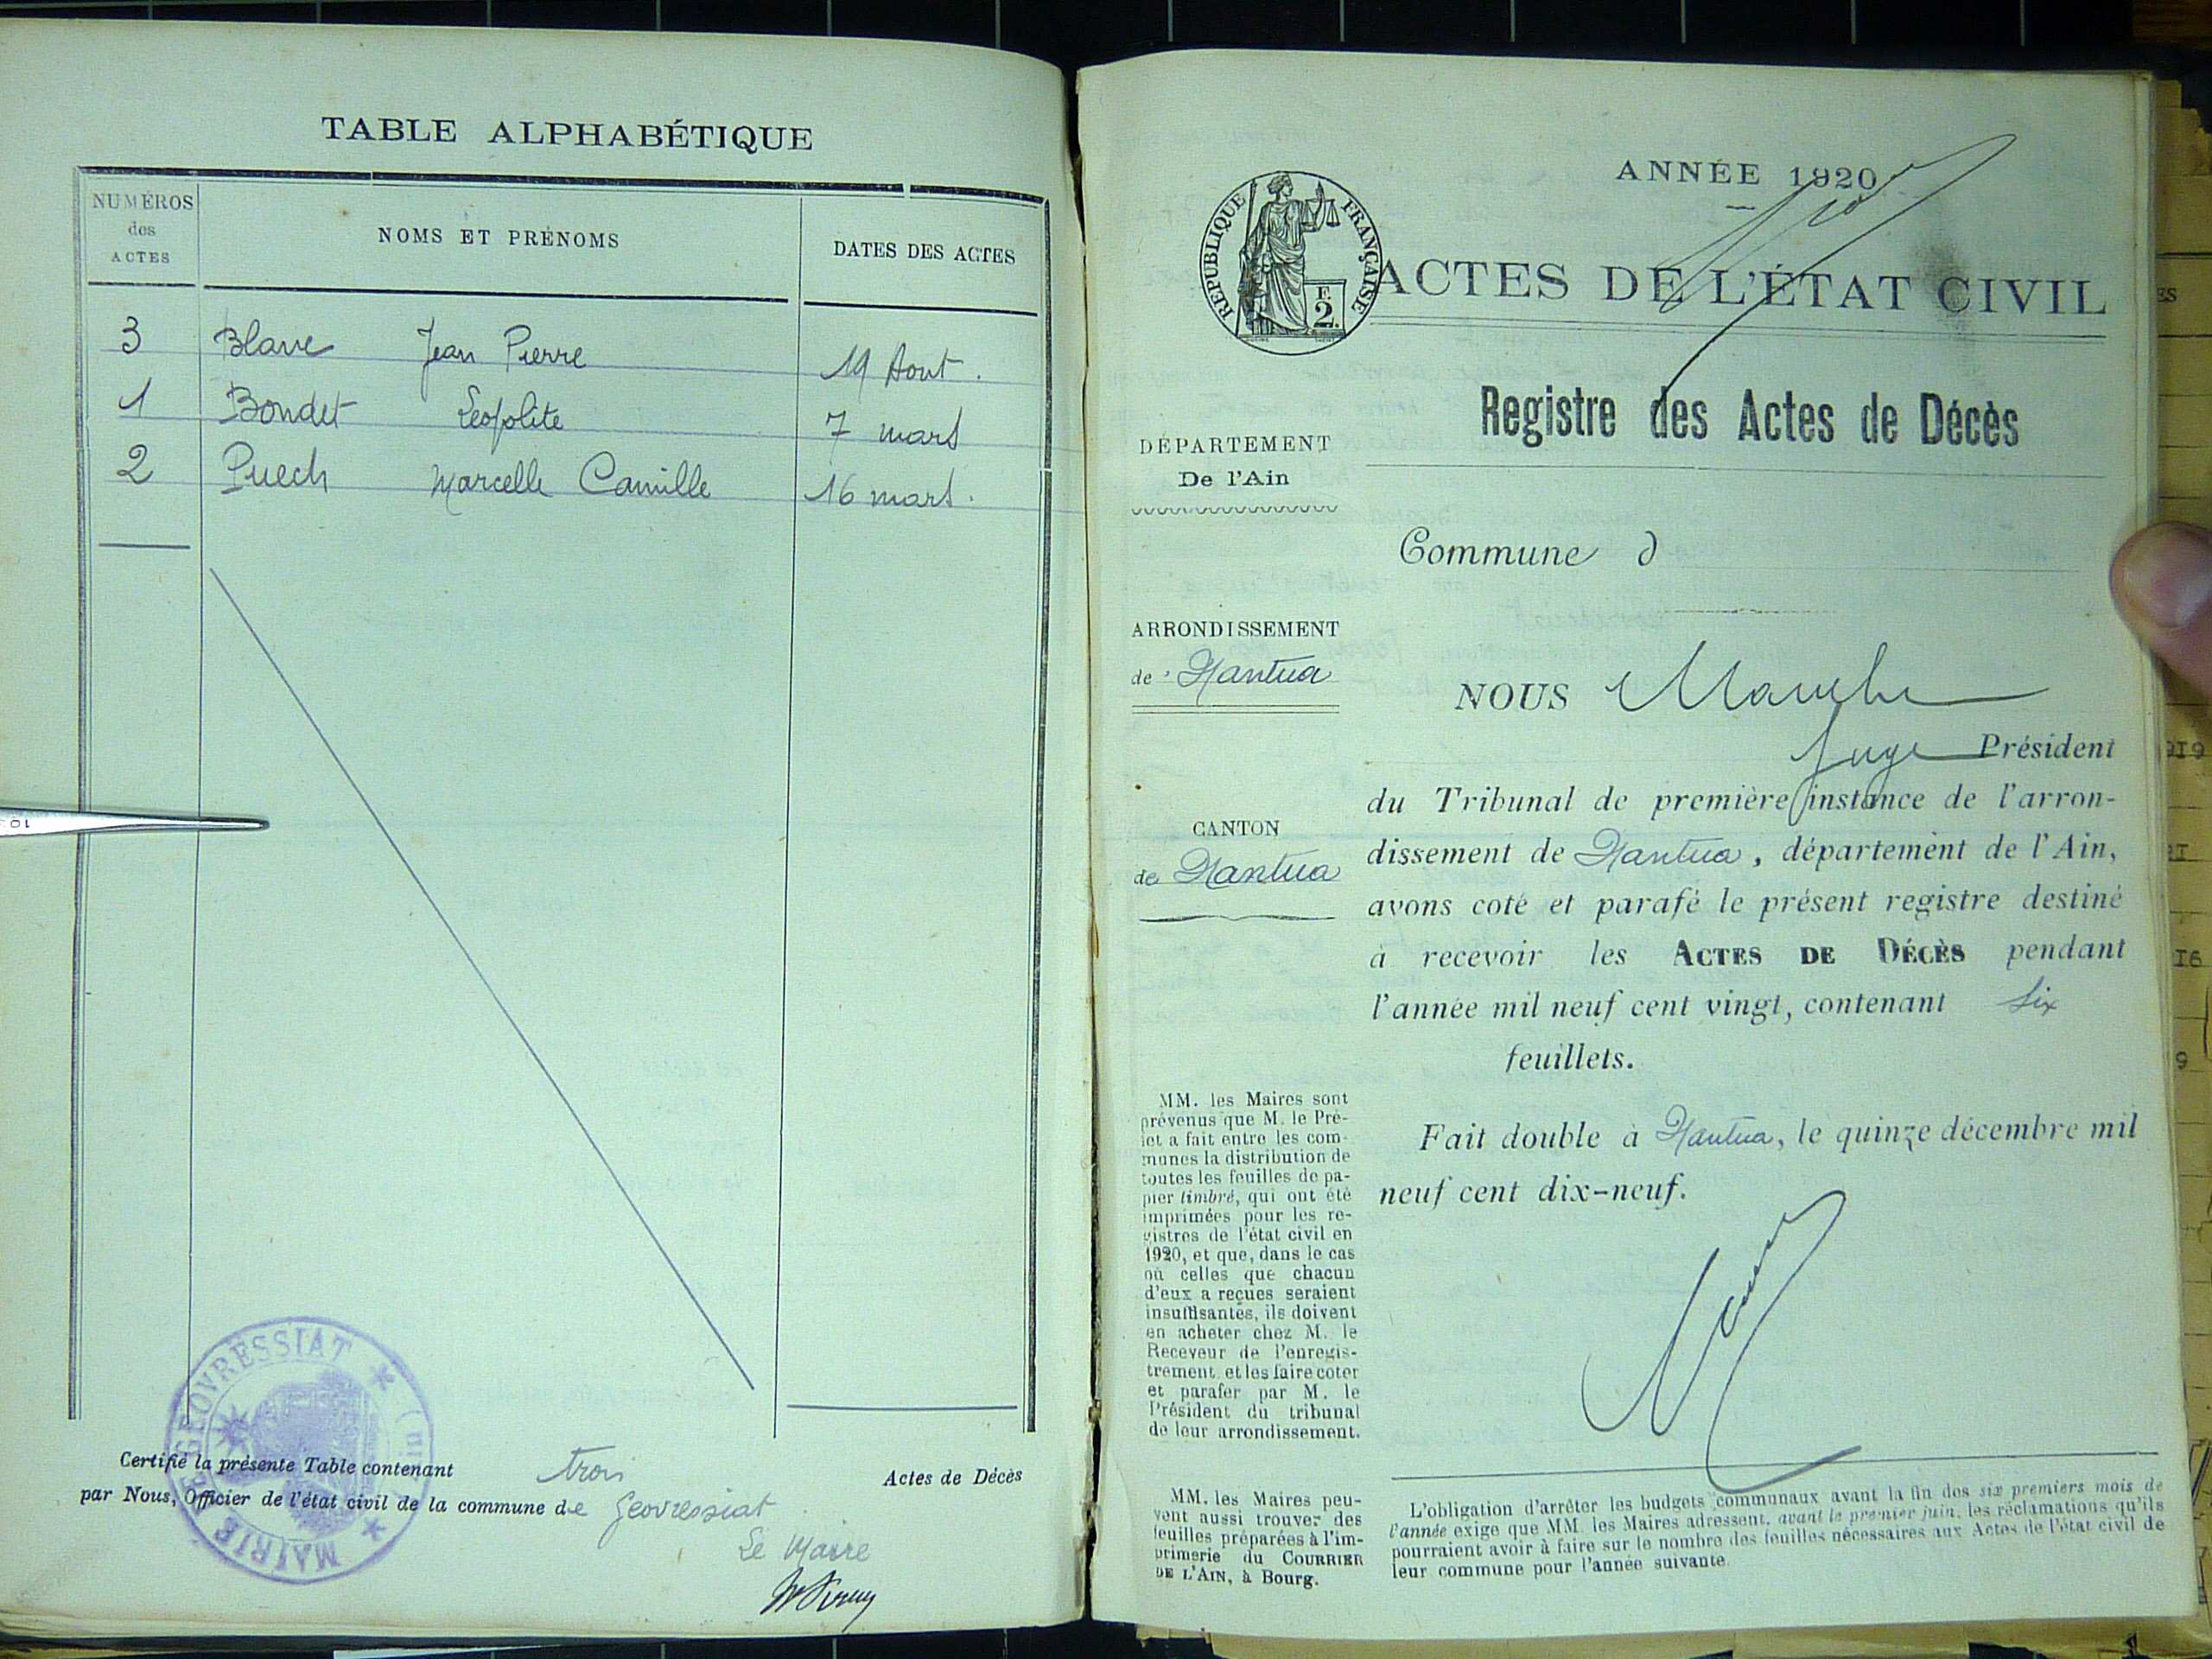 TABLE ALPHABÉTIQUE
NUMÉROS
des
ACTES
NOMS ET PRÉNOMS
DATES DES ACTES
3 Blanc Jean Pierre 19 Aout.
1 Bondet Léopolite 7 mars
2 Puech Marcelle Camille 16 mars.
Certifié la présente Table contenant trois Actes de Décès
par Nous, Officier de l'état civil de la commune de Geovressiat
Le Maire
MAIRIE DE GEOVRESSIAT
ANNÉE 1920
RÉPUBLIQUE FRANÇAISE
F.
2.
ACTES DE L'ÉTAT CIVIL
Registre des Actes de Décès
DÉPARTEMENT
De l'Ain
Commune d
ARRONDISSEMENT
de Nantua
NOUS
Juge Président
du Tribunal de première instance de l'arron-
dissement de Nantua, département de l'Ain,
avons coté et parafé le présent registre destiné
à recevoir les ACTES DE DÉCÈS pendant
l'année mil neuf cent vingt, contenant six
feuillets.
Fait double à Nantua, le quinze décembre mil
neuf cent dix-neuf.
CANTON
de Nantua
MM. les Maires sont
prévenus que M. le Pré-
fet a fait entre les com-
munes la distribution de
toutes les feuilles de pa-
pier timbré, qui ont été
imprimées pour les re-
gistres de l'état civil en
1920, et que, dans le cas
où celles que chacun
d'eux a reçues seraient
insuffisantes, ils doivent
en acheter chez M. le
Receveur de l'enregis-
trement et les faire coter
et parafer par M. le
Président du tribunal
de leur arrondissement.
MM. les Maires peu-
vent aussi trouver des
feuilles préparées à l'im-
primerie du COURRIER
DE L'AIN, à Bourg.
L'obligation d'arrêter les budgets communaux avant la fin des six premiers mois de
l'année exige que MM. les Maires adressent, avant le premier juin, les réclamations qu'ils
pourraient avoir à faire sur le nombre des feuilles nécessaires aux Actes de l'état civil de
leur commune pour l'année suivante.